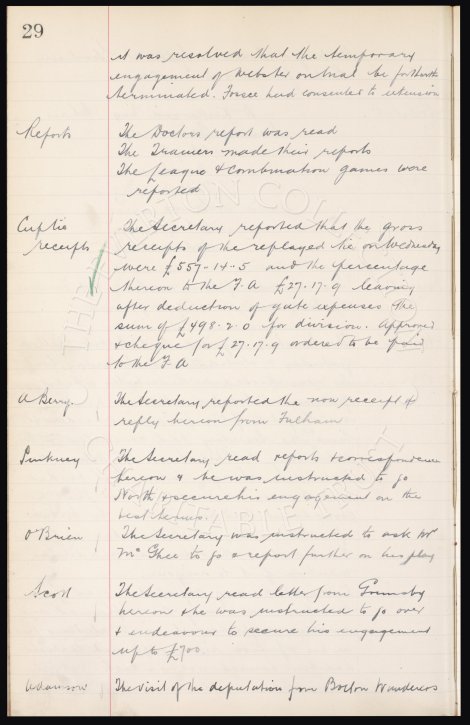 29
it was resolved that the temporary
engagement of Webster on trial be forthwith
terminated. Fosse had consented to extension
Reports The Doctors report was read
The Trainers made their reports
The League & Combination games were
reported
Cup tie The Secretary reported that the gross
receipts receipts of the replayed tie on Wednesday
were £557-14-5 and the percentage
thereon to the F.A £27.17.9 leaving
after deduction of gate expenses the
sum of £498.2.0 for division. Approved
& cheque for £27.17.9 ordered to be paid
to the F A
A Berry The Secretary reported the non receipt of
reply hereon from Fulham
Pinkney The Secretary read reports & correspondence
hereon & he was instructed to go
North & secure his engagement on the
best terms.
O'Brien The Secretary was instructed to ask Mr
McGhee to go & report further on his play
Scott The Secretary read letter from Grimsby
hereon & he was instructed to go over
& endeavour to secure his engagement
up to £700
Adamson The visit of the deputation from Bolton Wanderers